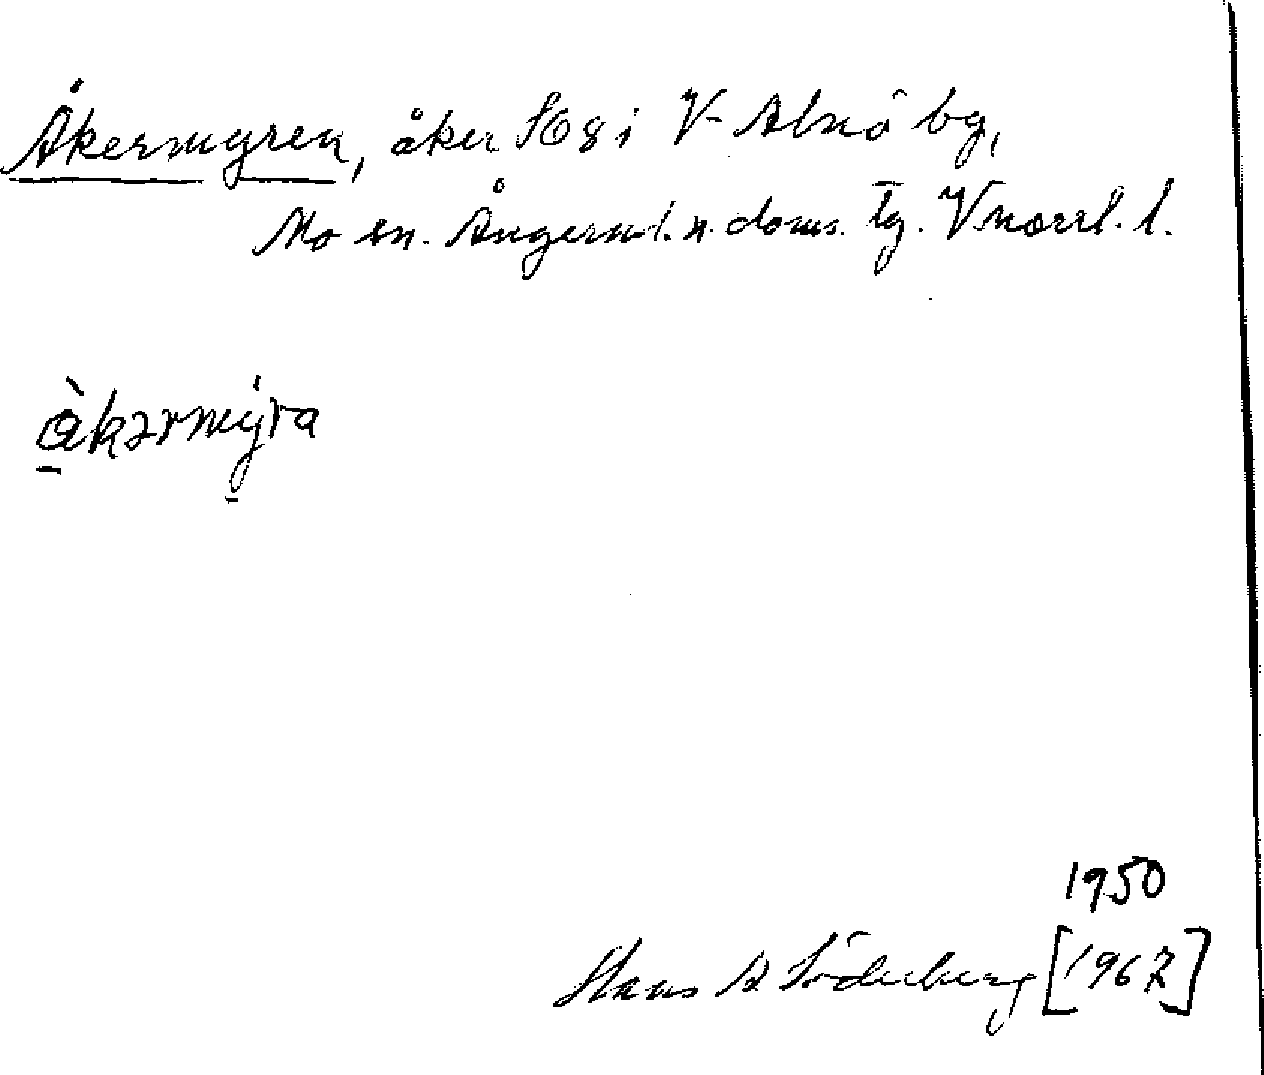 Åkermyren, åker S68 i V Alnö bg,
Mo sn. Ångerml. n. doms. tg. Vnorrl. l.
åkərmy̱ra
1950
Hans A Söderberg [1967]